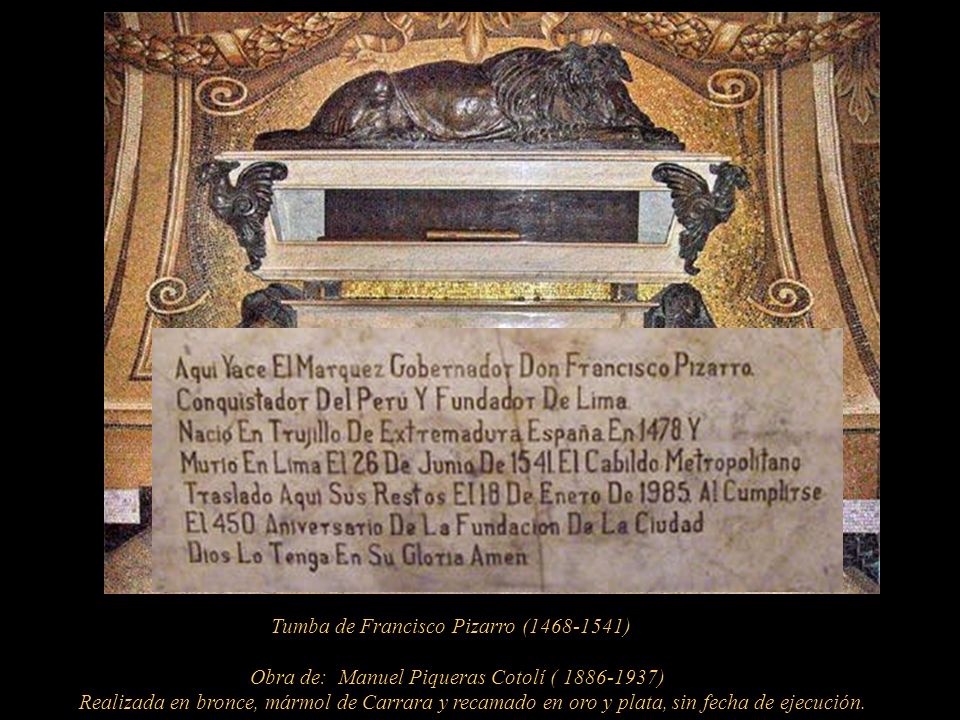 Aqui Yace El Marquez Gobernador Don Francisco Pizarro.
Conquistador Del Perú Y Fundador De Lima.
Nació En Trujillo De Extremadura España En 1478 Y
Murio En Lima El 26 De Junio De 1541. El Cabildo Metropolitano
Traslado Aqui Sus Restos El 18 De Enero De 1985. Al Cumplirse
El 450 Aniversario De La Fundacion De La Ciudad
Dios Lo Tenga En Su Gloria Amen
Tumba de Francisco Pizarro (1468-1541)
Obra de: Manuel Piqueras Cotolí ( 1886-1937)
Realizada en bronce, mármol de Carrara y recamado en oro y plata, sin fecha de ejecución.